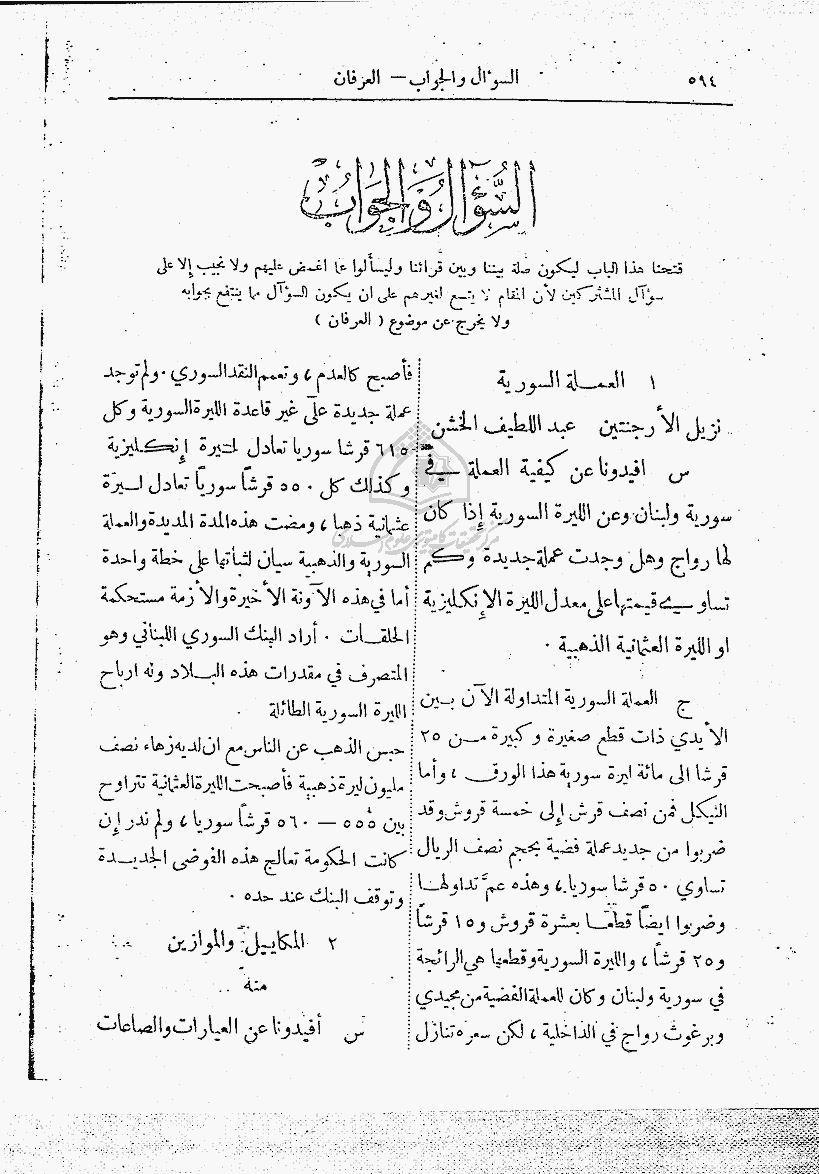 ٥٩٤
السوءال والجواب — العرفان
السُّؤَال وَالجَوَاب
فتحنا هذا الباب ليكون صلة بيننا وبين قرائنا وليسألوا عما اغمض عليهم ولا نجيب إلا على
سوءآل المشتركين لأن المقام لا يتسع لغيرهم على ان يكون السوءآل مما ينتفع بجوابه
ولا يخرج عن موضوع ( العرفان )
١ العمـلة السورية
نزيل الأرجنتين عبد اللطيف الخشن
س افيدونا عن كيفية العملة في
سورية ولبنان وعن الليرة السورية إذا كان
لها رواج وهل وجدت عملة جديدة وكم
تساوي قيمتها على معدل الليرة الإنكليزية
او الليرة العثمانية الذهبية ٠
ج العملة السورية المتداولة الآن بين
الأيدي ذات قطع صغيرة وكبيرة من ٢٥
قرشا الى مائة ليرة سورية هذا الورق ، وأما
النيكل فمن نصف قرش إلى خمسة قروش وقد
ضربوا من جديد عملة فضية بحجم نصف الريال
تساوي ٥٠ قرشا سوريا ، وهذه عمَّ تداولها
وضربوا ايضاً قطعاً بعشرة قروش و١٥ قرشاً
و٢٥ قرشاً ، والليرة السورية وقطعها هي الرائجة
في سورية ولبنان وكان للعملة الفضية من مجيدي
وبرغوث رواج في الداخلية ، لكن سعره تنازل
فأصبح كالعدم ، وتعمم النقد السوري ٠ ولم توجد
عملة جديدة على غير قاعدة الليرة السورية وكل
٦١٥ قرشا سوريا تعادل ليرة إنكليزية
وكذلك كل ٥٥٠ قرشاً سورياً تعادل ليرة
عثمانية ذهبا ، ومضت هذه المدة المديدة والعملة
السورية والذهبية سيان لثباتها على خطة واحدة
أما في هذه الآونة الأخيرة والأزمة مستحكمة
الحلقات ٠ أراد البنك السوري اللبناني وهو
المتصرف في مقدرات هذه البلاد وله ارباح
الليرة السورية الطائلة
حبس الذهب عن الناس مع ان لديه زهاء نصف
مليون ليرة ذهبية فأصبحت الليرة العثمانية تتراوح
بين ٥٥٥ — ٥٦٠ قرشاً سوريا ، ولم ندر إن
كانت الحكومة تعالج هذه الفوضى الجديدة
وتوقف البنك عند حده ٠
٢ المكاييل والموازين
منه
س أفيدونا عن العيارات والصاعات